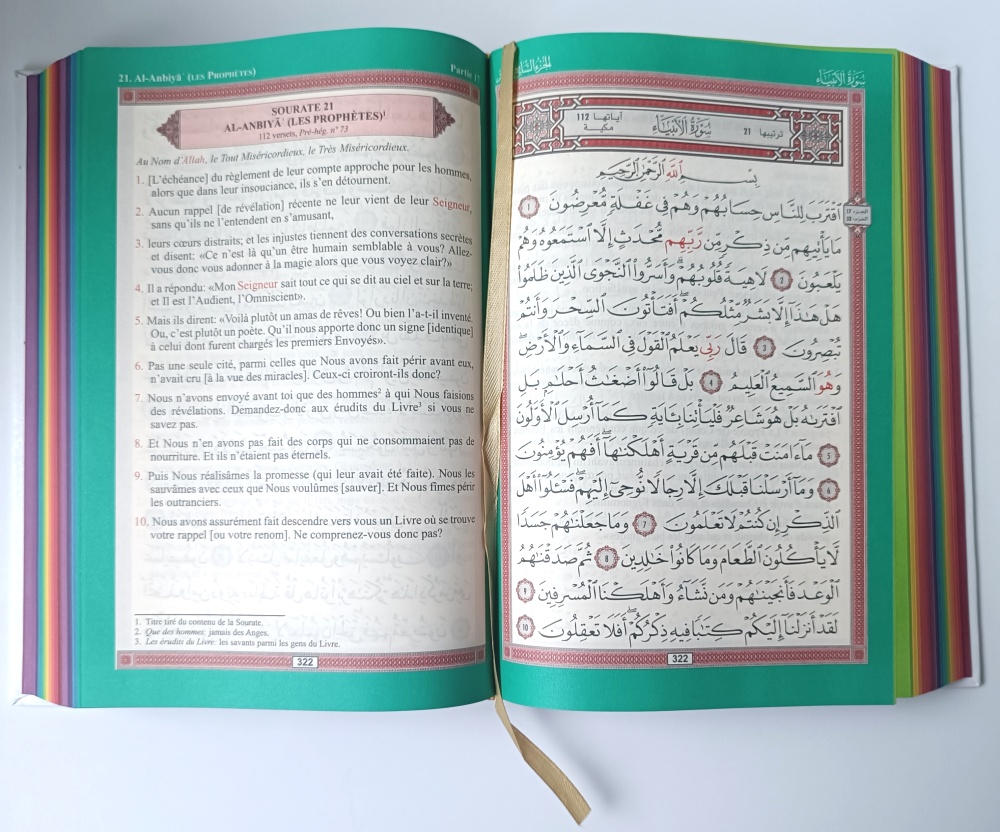 21. Al-Anbiyā' (LES PROPHÈTES)
Partie 17
SOURATE 21
AL-ANBIYĀ' (LES PROPHÈTES)¹
112 versets, Pré-hég. n° 73
Au Nom d'Allah, le Tout Miséricordieux, le Très Miséricordieux.
1. [L'échéance] du règlement de leur compte approche pour les hommes,
alors que dans leur insouciance, ils s'en détournent.
2. Aucun rappel [de révélation] récente ne leur vient de leur Seigneur,
sans qu'ils ne l'entendent en s'amusant,
3. leurs cœurs distraits; et les injustes tiennent des conversations secrètes
et disent: «Ce n'est là qu'un être humain semblable à vous? Allez-
vous donc vous adonner à la magie alors que vous voyez clair?»
4. Il a répondu: «Mon Seigneur sait tout ce qui se dit au ciel et sur la terre;
et Il est l'Audient, l'Omniscient».
5. Mais ils dirent: «Voilà plutôt un amas de rêves! Ou bien l'a-t-il inventé.
Ou, c'est plutôt un poète. Qu'il nous apporte donc un signe [identique]
à celui dont furent chargés les premiers Envoyés».
6. Pas une seule cité, parmi celles que Nous avons fait périr avant eux,
n'avait cru [à la vue des miracles]. Ceux-ci croiront-ils donc?
7. Nous n'avons envoyé avant toi que des hommes² à qui Nous faisions
des révélations. Demandez-donc aux érudits du Livre³ si vous ne
savez pas.
8. Et Nous n'en avons pas fait des corps qui ne consommaient pas de
nourriture. Et ils n'étaient pas éternels.
9. Puis Nous réalisâmes la promesse (qui leur avait été faite). Nous les
sauvâmes avec ceux que Nous voulûmes [sauver]. Et Nous fîmes périr
les outranciers.
10. Nous avons assurément fait descendre vers vous un Livre où se trouve
votre rappel [ou votre renom]. Ne comprenez-vous donc pas?
1. Titre tiré du contenu de la Sourate.
2. Que des hommes: jamais des Anges.
3. Les érudits du Livre: les savants parmi les gens du Livre.
322
سُورَةُ الأَنبِيَاءِ
ترتيبها 21
سُورَةُ الأَنبِيَاءِ
آياتها 112
مكية
بِسْمِ اللَّهِ الرَّحْمَٰنِ الرَّحِيمِ
ٱقْتَرَبَ لِلنَّاسِ حِسَابُهُمْ وَهُمْ فِي غَفْلَةٍ مُّعْرِضُونَ ۝١
مَا يَأْتِيهِم مِّن ذِكْرٍ مِّن رَّبِّهِم مُّحْدَثٍ إِلَّا ٱسْتَمَعُوهُ وَهُمْ
يَلْعَبُونَ ۝٢ لَاهِيَةً قُلُوبُهُمْ ۗ وَأَسَرُّوا۟ ٱلنَّجْوَى ٱلَّذِينَ ظَلَمُوا۟
هَلْ هَٰذَآ إِلَّا بَشَرٌ مِّثْلُكُمْ ۖ أَفَتَأْتُونَ ٱلسِّحْرَ وَأَنتُمْ
تُبْصِرُونَ ۝٣ قَالَ رَبِّي يَعْلَمُ ٱلْقَوْلَ فِي ٱلسَّمَآءِ وَٱلْأَرْضِ ۖ
وَهُوَ ٱلسَّمِيعُ ٱلْعَلِيمُ ۝٤ بَلْ قَالُوٓا۟ أَضْغَٰثُ أَحْلَٰمٍۭ بَلِ
ٱفْتَرَىٰهُ بَلْ هُوَ شَاعِرٌ فَلْيَأْتِنَا بِـَٔايَةٍ كَمَآ أُرْسِلَ ٱلْأَوَّلُونَ
۝٥ مَآ ءَامَنَتْ قَبْلَهُم مِّن قَرْيَةٍ أَهْلَكْنَٰهَآ ۖ أَفَهُمْ يُؤْمِنُونَ
۝٦ وَمَآ أَرْسَلْنَا قَبْلَكَ إِلَّا رِجَالًا نُّوحِىٓ إِلَيْهِمْ ۖ فَسْـَٔلُوٓا۟ أَهْلَ
ٱلذِّكْرِ إِن كُنتُمْ لَا تَعْلَمُونَ ۝٧ وَمَا جَعَلْنَٰهُمْ جَسَدًا
لَّا يَأْكُلُونَ ٱلطَّعَامَ وَمَا كَانُوا۟ خَٰلِدِينَ ۝٨ ثُمَّ صَدَقْنَٰهُمُ
ٱلْوَعْدَ فَأَنجَيْنَٰهُمْ وَمَن نَّشَآءُ وَأَهْلَكْنَا ٱلْمُسْرِفِينَ ۝٩
لَقَدْ أَنزَلْنَآ إِلَيْكُمْ كِتَٰبًا فِيهِ ذِكْرُكُمْ ۖ أَفَلَا تَعْقِلُونَ ۝١٠
322